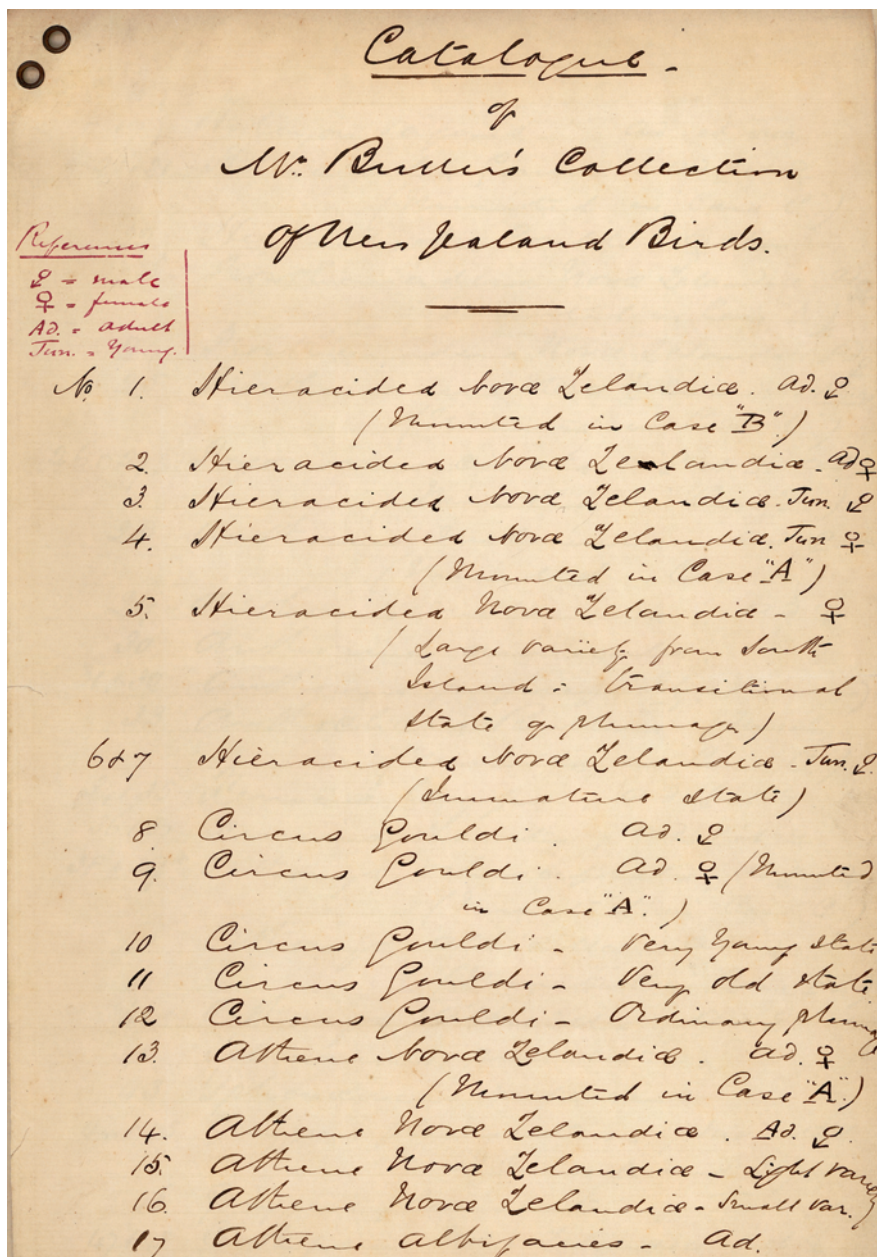 Catalogue -
of
Mr. Buller's Collection
of New Zealand Birds.
References
♂ = male
♀ = female
Ad. = adult
Juv. = Young.
No. 1. Hieracidea Novæ Zelandiæ. Ad. ♂
(Mounted in Case "B".)
2. Hieracidea Novæ Zelandiæ. Ad ♀
3. Hieracidea Novæ Zelandiæ. Juv. ♂
4. Hieracidea Novæ Zelandiæ. Juv ♀
(Mounted in Case "A")
5. Hieracidea Novæ Zelandiæ - ♀
(Large variety from South
Island = transitional
state of plumage)
6 & 7 Hieracidea Novæ Zelandiæ - Juv. ♂.
(Immature state)
8. Circus Gouldi. Ad. ♂
9. Circus Gouldi. Ad. ♀ (Mounted
in Case "A".)
10 Circus Gouldi - Very Young state
11 Circus Gouldi - Very old state
12 Circus Gouldi - Ordinary plumage
13. Athene Novæ Zelandiæ. Ad. ♀
(Mounted in Case "A".)
14. Athene Novæ Zelandiæ. Ad. ♂.
15. Athene Novæ Zelandiæ - Light variety
16. Athene Novæ Zelandiæ - Small var.
17 Athene albifacies - Ad.